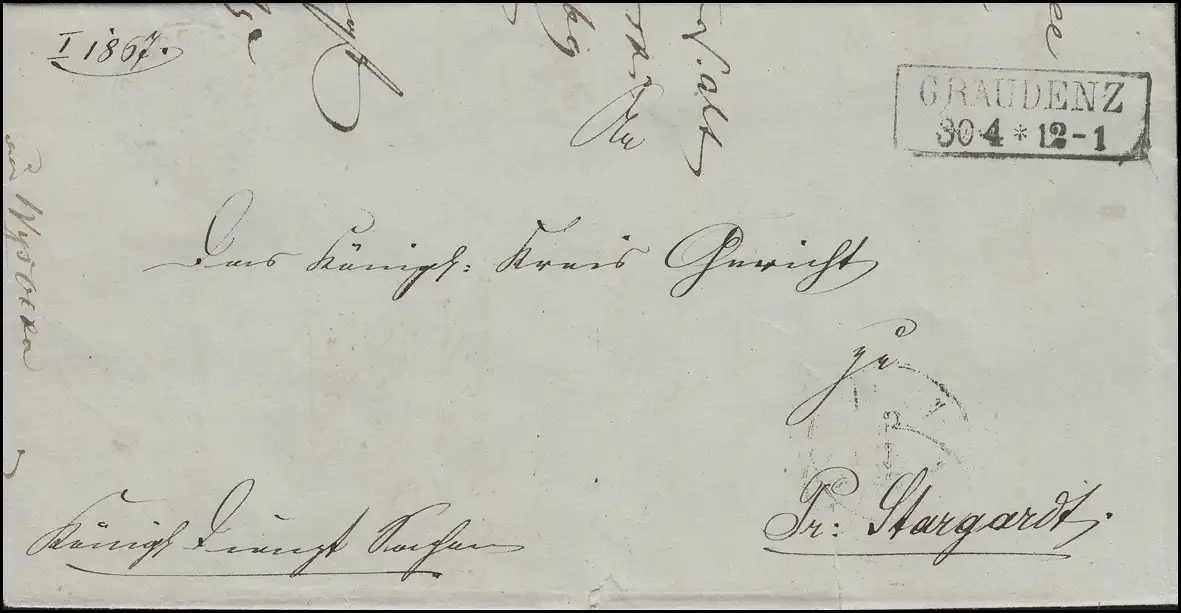 I 1867.
GRAUDENZ
30 4 * 12-1
An
Das Königl: Kreis Gericht
zu
Pr: Stargardt.
Königl Dienst Sachen